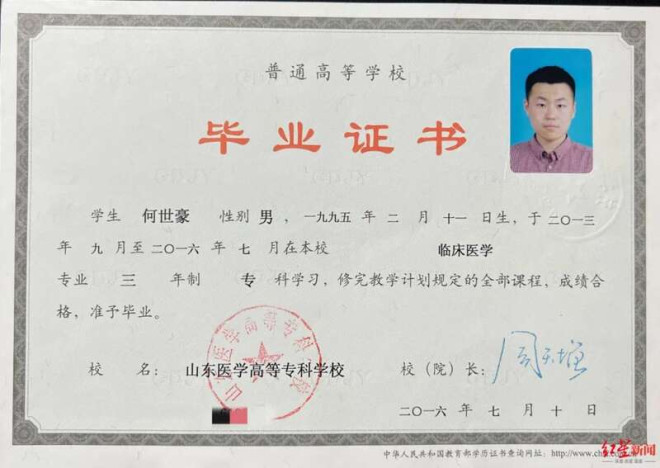 普通高等学校
毕业证书
学生 何世豪 性别 男，一九九五 年 二 月 十一 日生，于 二〇一三
年 九 月至 二〇一六 年 七 月在本校 临床医学
专业 三 年制 专 科学习，修完教学计划规定的全部课程，成绩合
格，准予毕业。
校 名： 山东医学高等专科学校 校（院）长：
山东医学高等专科学校
二〇一六 年 七 月 十 日
中华人民共和国教育部学历证书查询网址：http://www.ch
红星新闻